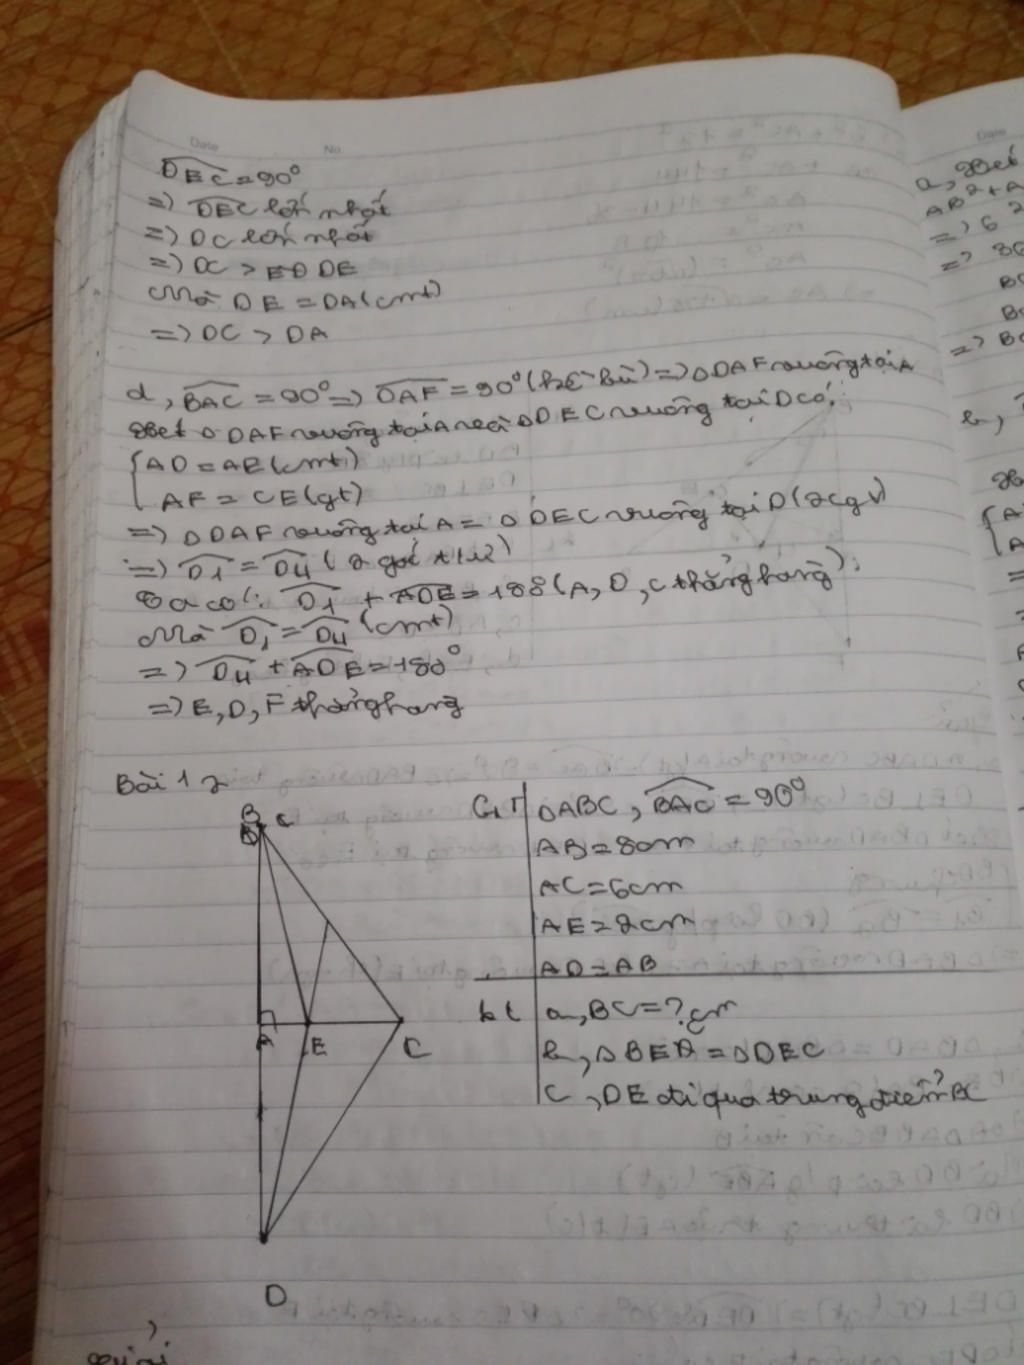 Date No.
DEC = 90°
=> DEC lớn nhất
=> DC lớn nhất
=> DC > ED DE
Mà DE = DA (cmt)
=> DC > DA
d, BAC = 90° => DAF = 90° (kề bù) => ΔDAF vuông tại A
Xét Δ DAF vuông tại A và ΔDEC vuông tại D có:
{ AD = AE (cmt)
AF = CE (gt)
=> Δ DAF vuông tại A = Δ DEC vuông tại D (2cgv)
=> D1 = D4 (2 góc t/ứ)
Ta có: D1 + ADE = 180 (A, D, C thẳng hàng)
Mà D1 = D4 (cmt)
=> D4 + ADE = 180°
=> E, D, F thẳng hàng
Bài 12
GT ΔABC, BAC = 90°
AB = 8cm
AC = 6cm
AE = 2cm
AD = AB
kt a, BC = ? cm
b, ΔBEA = ΔDEC
C, DE đi qua trung điểm BC
B C
A E C
D
Date
a, Xét
AB² + A
=> 6²
=> 36
BC
BC
=> BC
b,